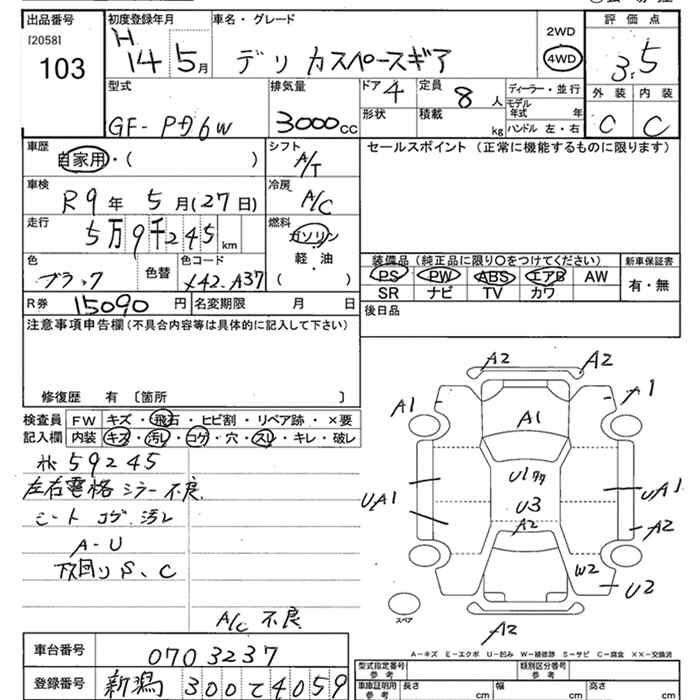 出品番号 初度登録年月 車名・グレード 評価点
[2058] H
103 14 5月 デリカスペースギア 2WD 4WD 3.5
外装 内装
C C
型式 排気量 ドア 定員 ディーラー・並行
GF-PD6W 3000cc 4 8人 モデル年式 年
形状 積載 kg ハンドル 左・右
車歴 シフト セールスポイント (正常に機能するものに限ります)
自家用・( ) A/T
車検 冷房
R9年 5月(27日) A/C
走行 燃料
5万9千245km ガソリン
軽・油
( )
色 色替 色コード 装備品(純正品に限り○をつけてください) 新車保証書
ブラック X42-A37 PS PW ABS エアB AW 有・無
SR ナビ TV カワ
R券 15090円 名変期限 月 日 後日品
注意事項申告欄(不具合内容等は具体的に記入して下さい)
修復歴 有 [箇所 ]
検査員 FW キズ・飛石・ヒビ割・リペア跡・×要
記入欄 内装 キズ・汚レ・コゲ・穴・スレ・キレ・破レ
59245
左右電格ミラー不良
シート コゲ.汚レ
A-U
下回りS、C
A/C 不良
A2 A2
A1 A1
A1
U1
UA1 U3 UA1
A2 A2
W2 U2
スペア
A2
A-キズ E-エクボ U-凹み W-補修跡 S-サビ C-腐食 XX-交換済
車台番号 0703237
型式指定番号 参考 類別区分番号 参考
登録番号 新潟300て4059
車庫証明用 参考 長さ cm 幅 cm 高さ cm